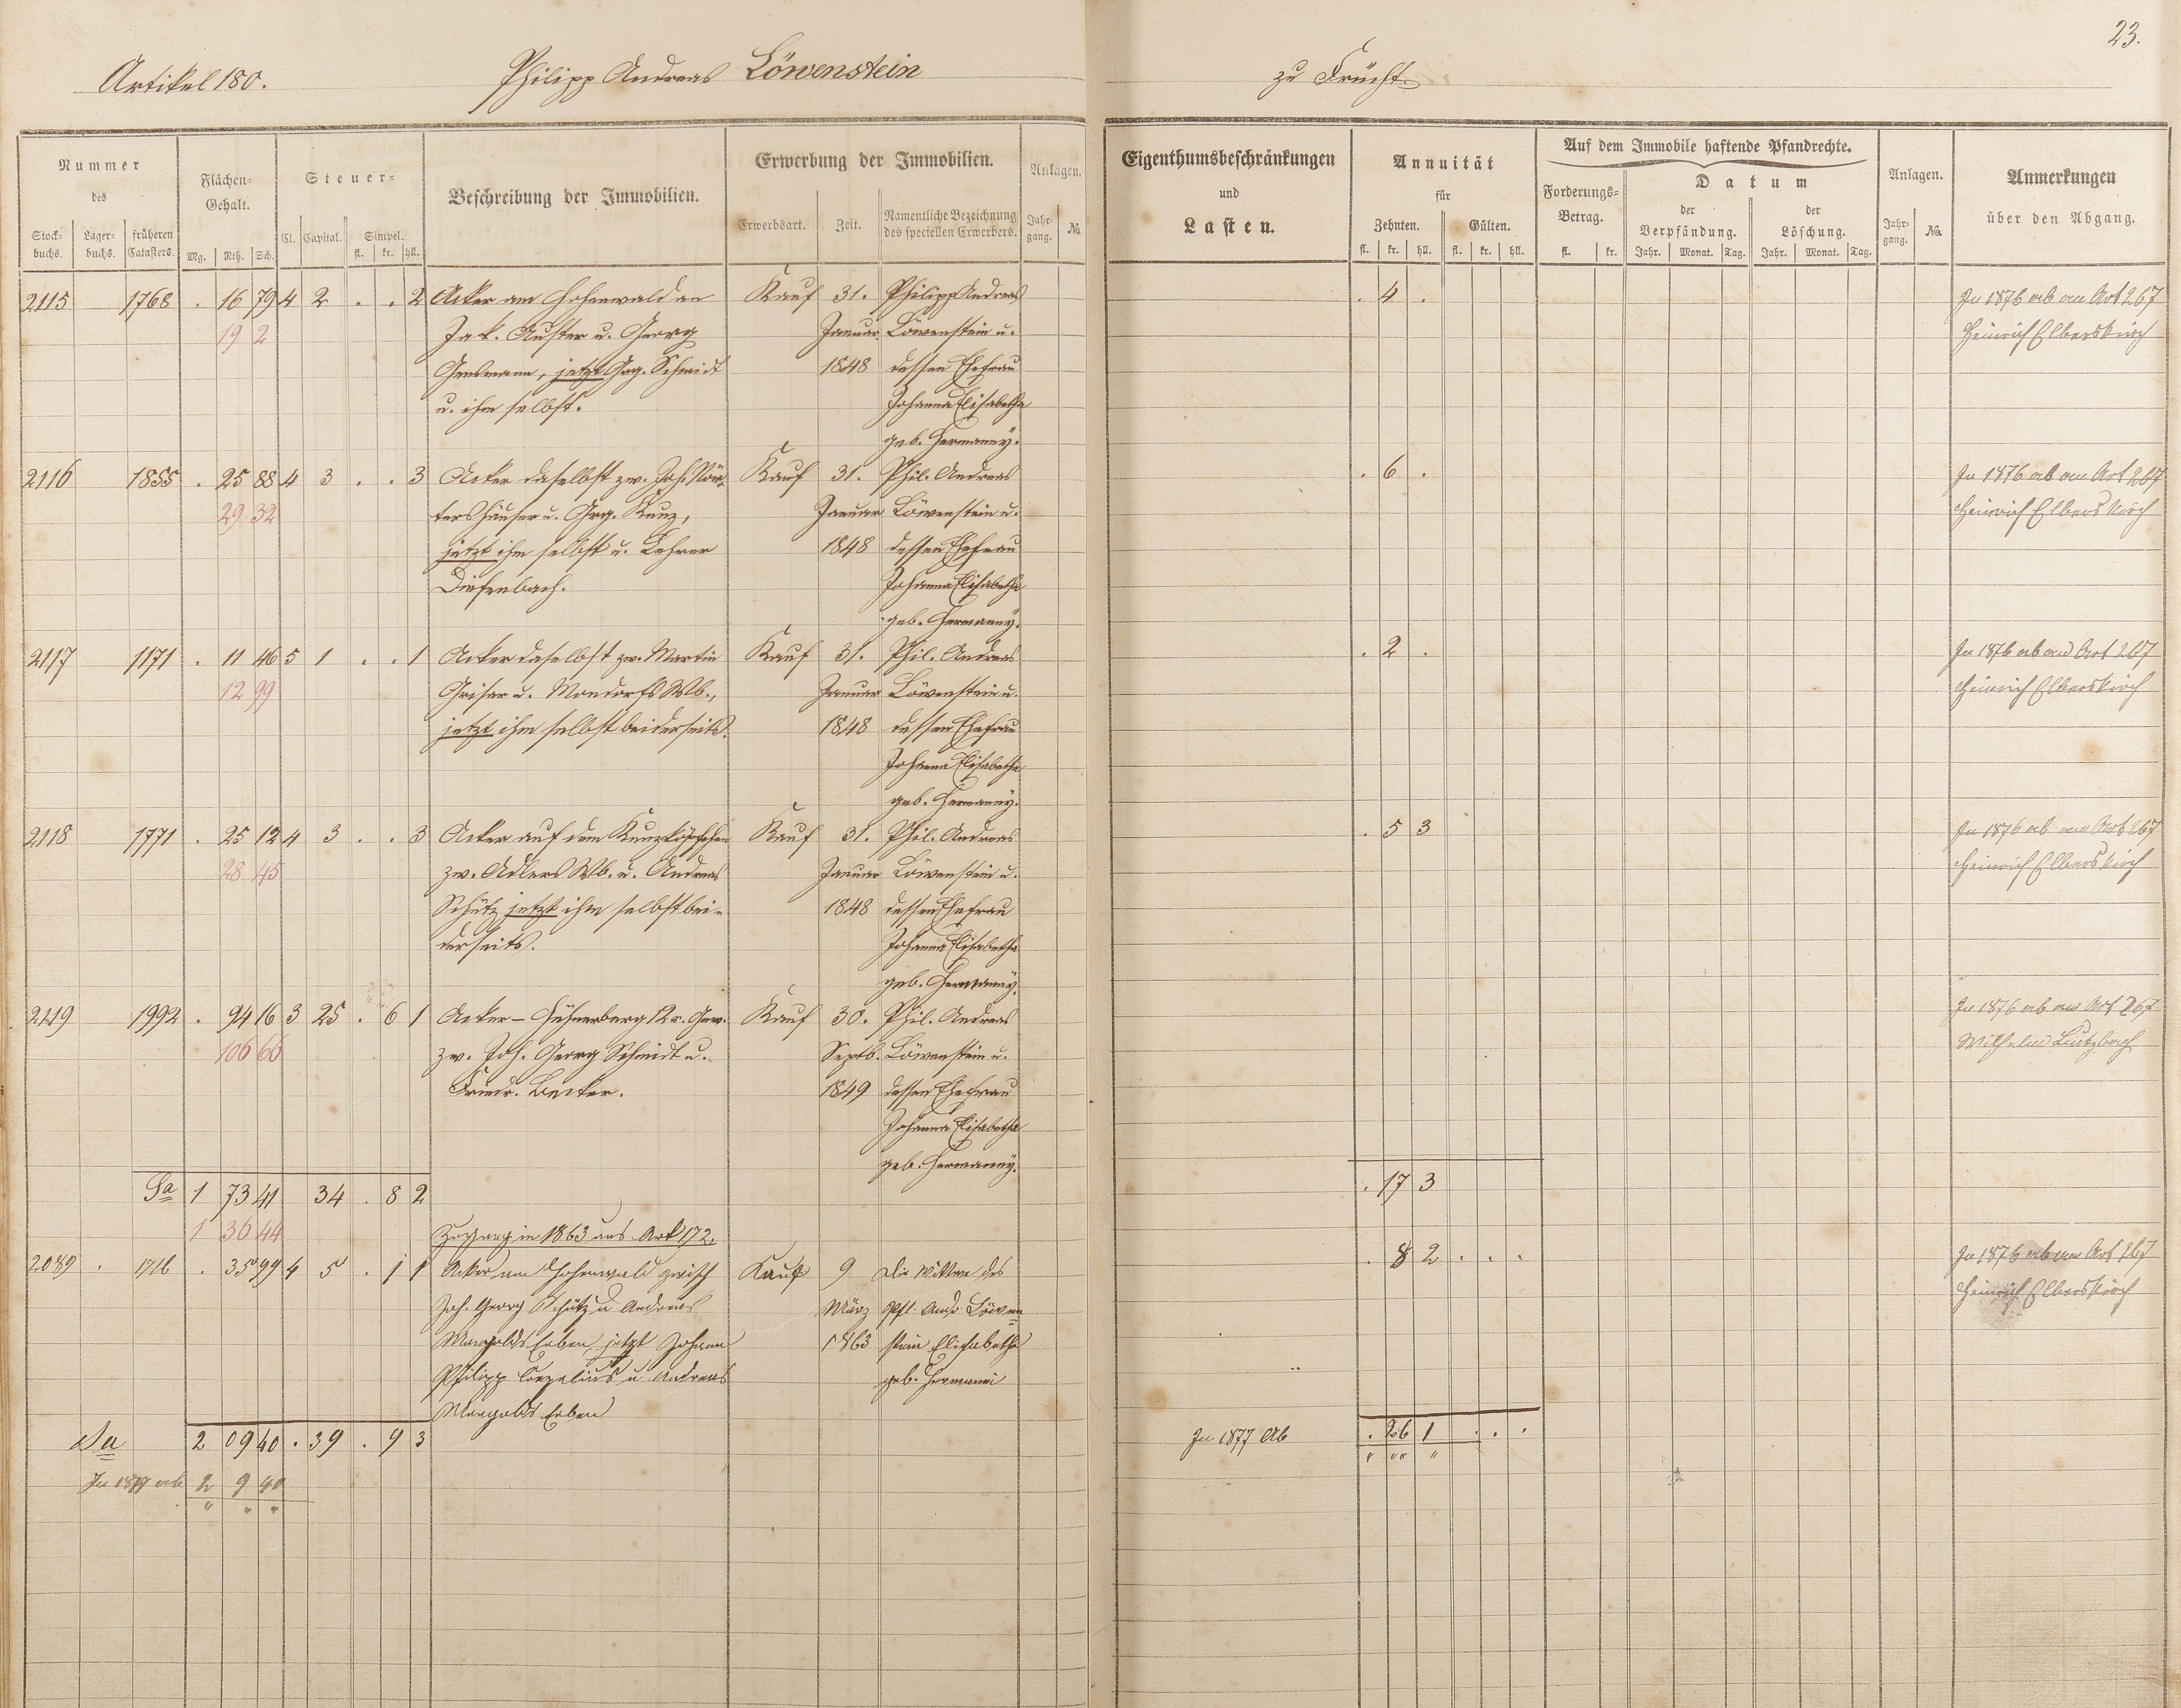 23.
Artikel 180. Philipp Andreas Löwenstein zu Frücht.
Nummer des
Stockbuchs. Lagerbuchs. früheren Catasters.
Flächen-Gehalt.
Mg. Rth. Sch.
Steuer-
Cl. Capital. Simpel. fl. kr. hll.
Beschreibung der Immobilien.
Erwerbung der Immobilien.
Erwerbsart. Zeit. Namentliche Bezeichnung des speciellen Erwerbers.
Anlagen.
Jahrgang. No.
Eigenthumsbeschränkungen
und
Lasten.
Annuität
für
Zehnten. Gülten.
fl. kr. hll. fl. kr. hll.
Auf dem Immobile haftende Pfandrechte.
Forderungs-Betrag. fl. kr.
Datum
der Verpfändung. der Löschung.
Jahr. Monat. Tag. Jahr. Monat. Tag.
Anlagen.
Jahrgang. No.
Anmerkungen
über den Abgang.
2115 1768 . 16 79 4 2 . . 2 Acker am Hohenwald an Kauf 31. Philipp Andreas . 4 . In 1876 ab an Art 267
19 2 Jak. Auster u. Georg Januar Löwenstein u. Heinrich Elberskirch
Gensmann, jetzt Grg. Schmidt 1848 dessen Ehefrau
u. ihm selbst. Johanna Elisabetha
geb. Hermanny.
2116 1855 . 25 88 4 3 . . 3 Acker daselbst zw. Joh. Nör- Kauf 31. Phil. Andreas . 6 . In 1876 ab an Art 267
29 32 tershäuser u. Grg. Kunz, Januar Löwenstein u. Heinrich Elberskirch
jetzt ihm selbst u. Lehrer 1848 dessen Ehefrau
Diefenbach. Johanna Elisabetha
geb. Hermanny.
2117 1171 . 11 46 5 1 . . 1 Acker daselbst zw. Martin Kauf 31. Phil. Andreas . 2 . In 1876 ab an Art 267
12 99 Griser u. Mondorfs Wb., Januar Löwenstein u. Heinrich Elberskirch
jetzt ihm selbst beiderseits. 1848 dessen Ehefrau
Johanna Elisabetha
geb. Hermanny.
2118 1771 . 25 12 4 3 . . 3 Acker auf dem Kunzköpfchen Kauf 31. Phil. Andreas . 5 3 In 1876 ab an Art 267
28 45 zw. Adlers Wb. u. Andreas Januar Löwenstein u. Heinrich Elberskirch
Schütz jetzt ihm selbst bei- 1848 dessen Ehefrau
derseits. Johanna Elisabetha
geb. Hermanny.
2119 1992 . 94 16 3 25 . 6 1 Acker - Hühnerberg 12r. Gew. Kauf 30. Phil. Andreas In 1876 ab an Art 267
106 66 zw. Joh. Georg Schmidt u. Septb. Löwenstein u. Wilhelm
Friedr. Becker. 1849 dessen Ehefrau
Johanna Elisabetha
geb. Hermanny.
Sa 1 73 41 34 . 8 2 . 17 3
1 36 44 Zugang in 1863 aus Art 172.
2089 . 1716 . 35 99 4 5 . 1 1 Acker am Hohenwald zwisch Kauf 9 Die Wittwe des . 8 2 . . . In 1876 ab an Art 267
Joh. Georg Schütz u Andreas März Phl. Andr. Löwen= Heinrich Elberskirch
Mangolds Erben, jetzt Johann 1863 stein Elisabetha
Philipp Cornelius u Andreas geb. Hermanni
Mangolds Erben
Sa 2 09 40 . 39 . 9 3 In 1877 Ab . 26 1 . . .
In 1877 ab 2 9 40 " " " "
" " "